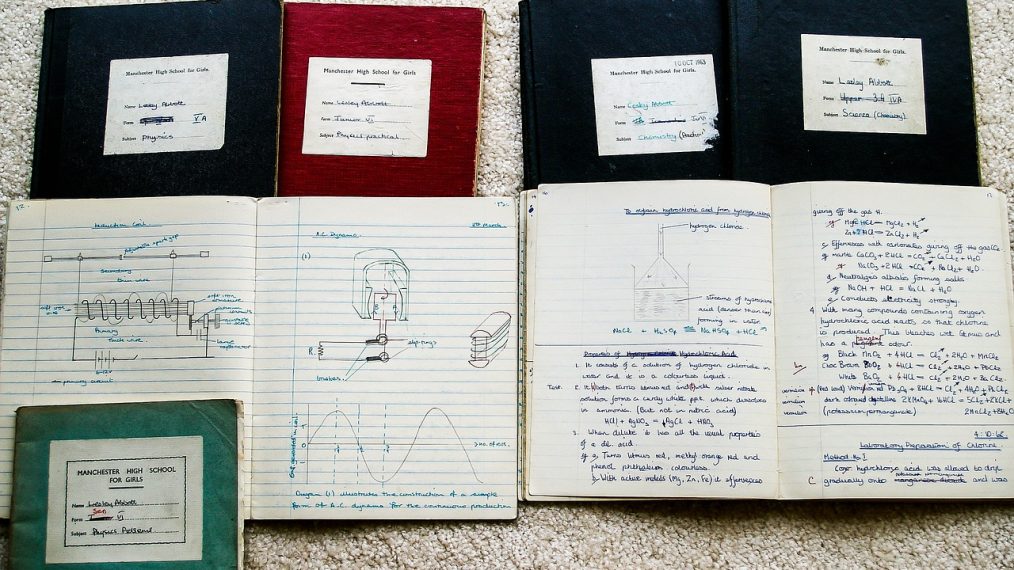 Manchester High School for Girls.
Name Lesley Abbott
Form V A
Subject Physics
Manchester High School for Girls
Name Lesley Abbott
Form Junior VI
Subject Physics practical.
10 OCT 1963
Manchester High School for Girls.
Name Lesley Abbott
Form
Subject Chemistry
Manchester High School for Girls.
Name Lesley Abbott
Form Upper 3.4 IVA
Subject Science (Chemistry)
12.
Induction Coil
Adjustable spark gap
Secondary
thin wire
soft iron
Primary
thick wire
primary circuit
13.
March.
A.C. Dynamo.
(1)
R
slip rings
brushes
no. of
Diagram (1) illustrates the construction of a simple
form of A.C. dynamo for the continuous production
MANCHESTER HIGH SCHOOL
FOR GIRLS
Name Lesley Abbott
Sen
Form VI
Subject Physics
To prepare hydrochloric acid from hydrogen
hydrogen chloride
streams of hydrochloric
acid (denser than
forming in water
NaCl + H₂SO₄ = NaHSO₄ + HCl
Properties of Hydrochloric Acid
1. It consists of a solution of hydrogen chloride in
water and it is a colourless liquid.
Test. 2. It turns litmus red and with silver nitrate
solution forms a curdy white ppt. which dissolves
in ammonia. (But not in nitric acid)
HCl + AgNO₃ = AgCl + HNO₃
3. When dilute it has all the usual properties
of a dil. acid
a. Turns litmus red, methyl orange red and
phenol phthalein colourless.
b. With active metals (Mg, Zn, Fe) it effervesces
giving off the gas H.
eg Mg + 2HCl = MgCl₂ + H₂
Zn + 2HCl = ZnCl₂ + H₂
c. Effervesces with carbonates giving off the gas CO₂
eg marble CaCO₃ + 2HCl = CO₂ + CaCl₂ + H₂O
d. Neutralizes alkalies forming salts
eg NaOH + HCl = NaCl + H₂O
e. Conducts electricity strongly.
4. With many compounds containing oxygen
hydrochloric acid reacts so that chlorine
is produced. This bleaches wet litmus and
has a pungent odour.
eg Black MnO₂ + 4HCl = Cl₂ + 2H₂O + MnCl₂
Choc Brown PbO₂ + 4HCl = Cl₂ + 2H₂O + PbCl₂
White BaO₂ + 4HCl = Cl₂ + 2H₂O + BaCl₂
(Red lead) Pb₃O₄ + 8HCl = Cl₂ + 4H₂O + PbCl₂
dark coloured crystalline 2KMnO₄ + 16HCl = 5Cl₂ + 2KCl +
(potassium permanganate) 2MnCl₂ + 8H₂O
Laboratory Preparation of Chlorine.
Method No 1
Conc hydrochloric acid was allowed to drip
gradually onto and was